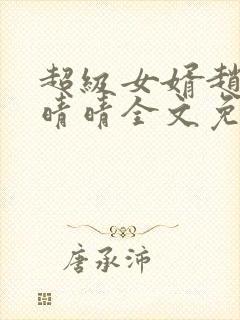 超級女婿趙
晴晴全文免
唐承沛